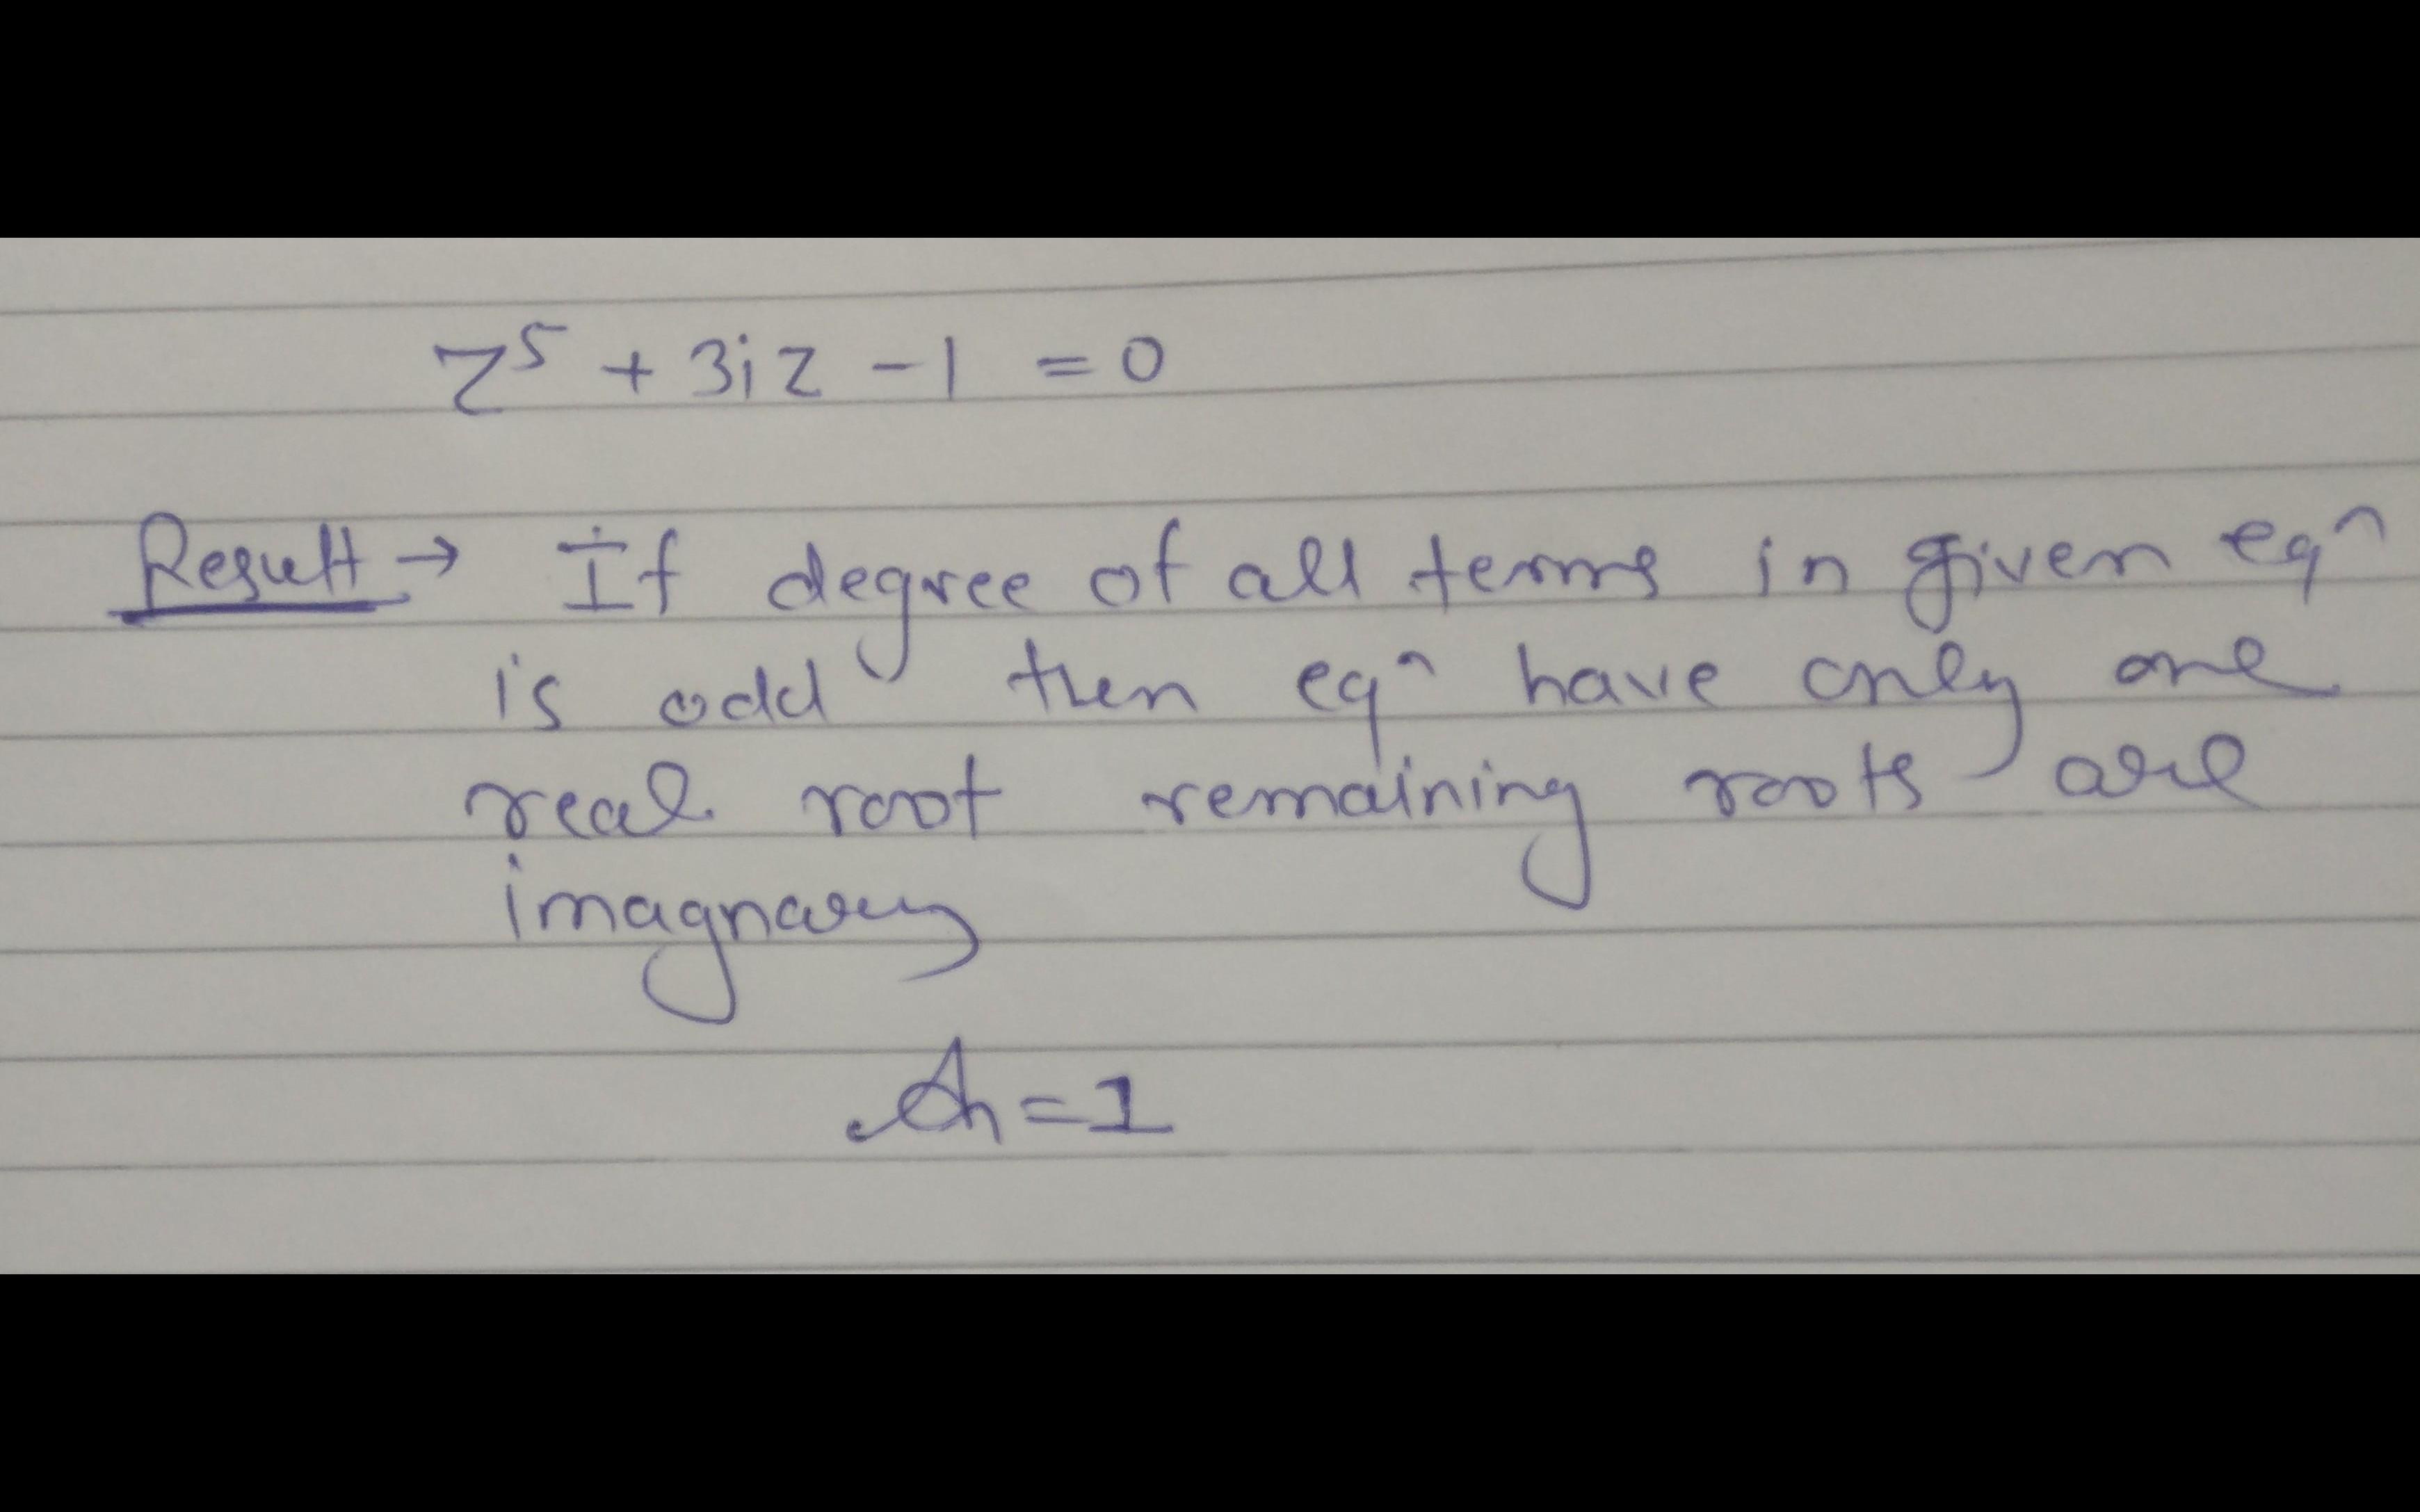 z⁵ + 3iz - 1 = 0
Result → If degree of all terms in given eqⁿ
is odd then eqⁿ have only one
real root remaining roots are
imagnary
An = 1